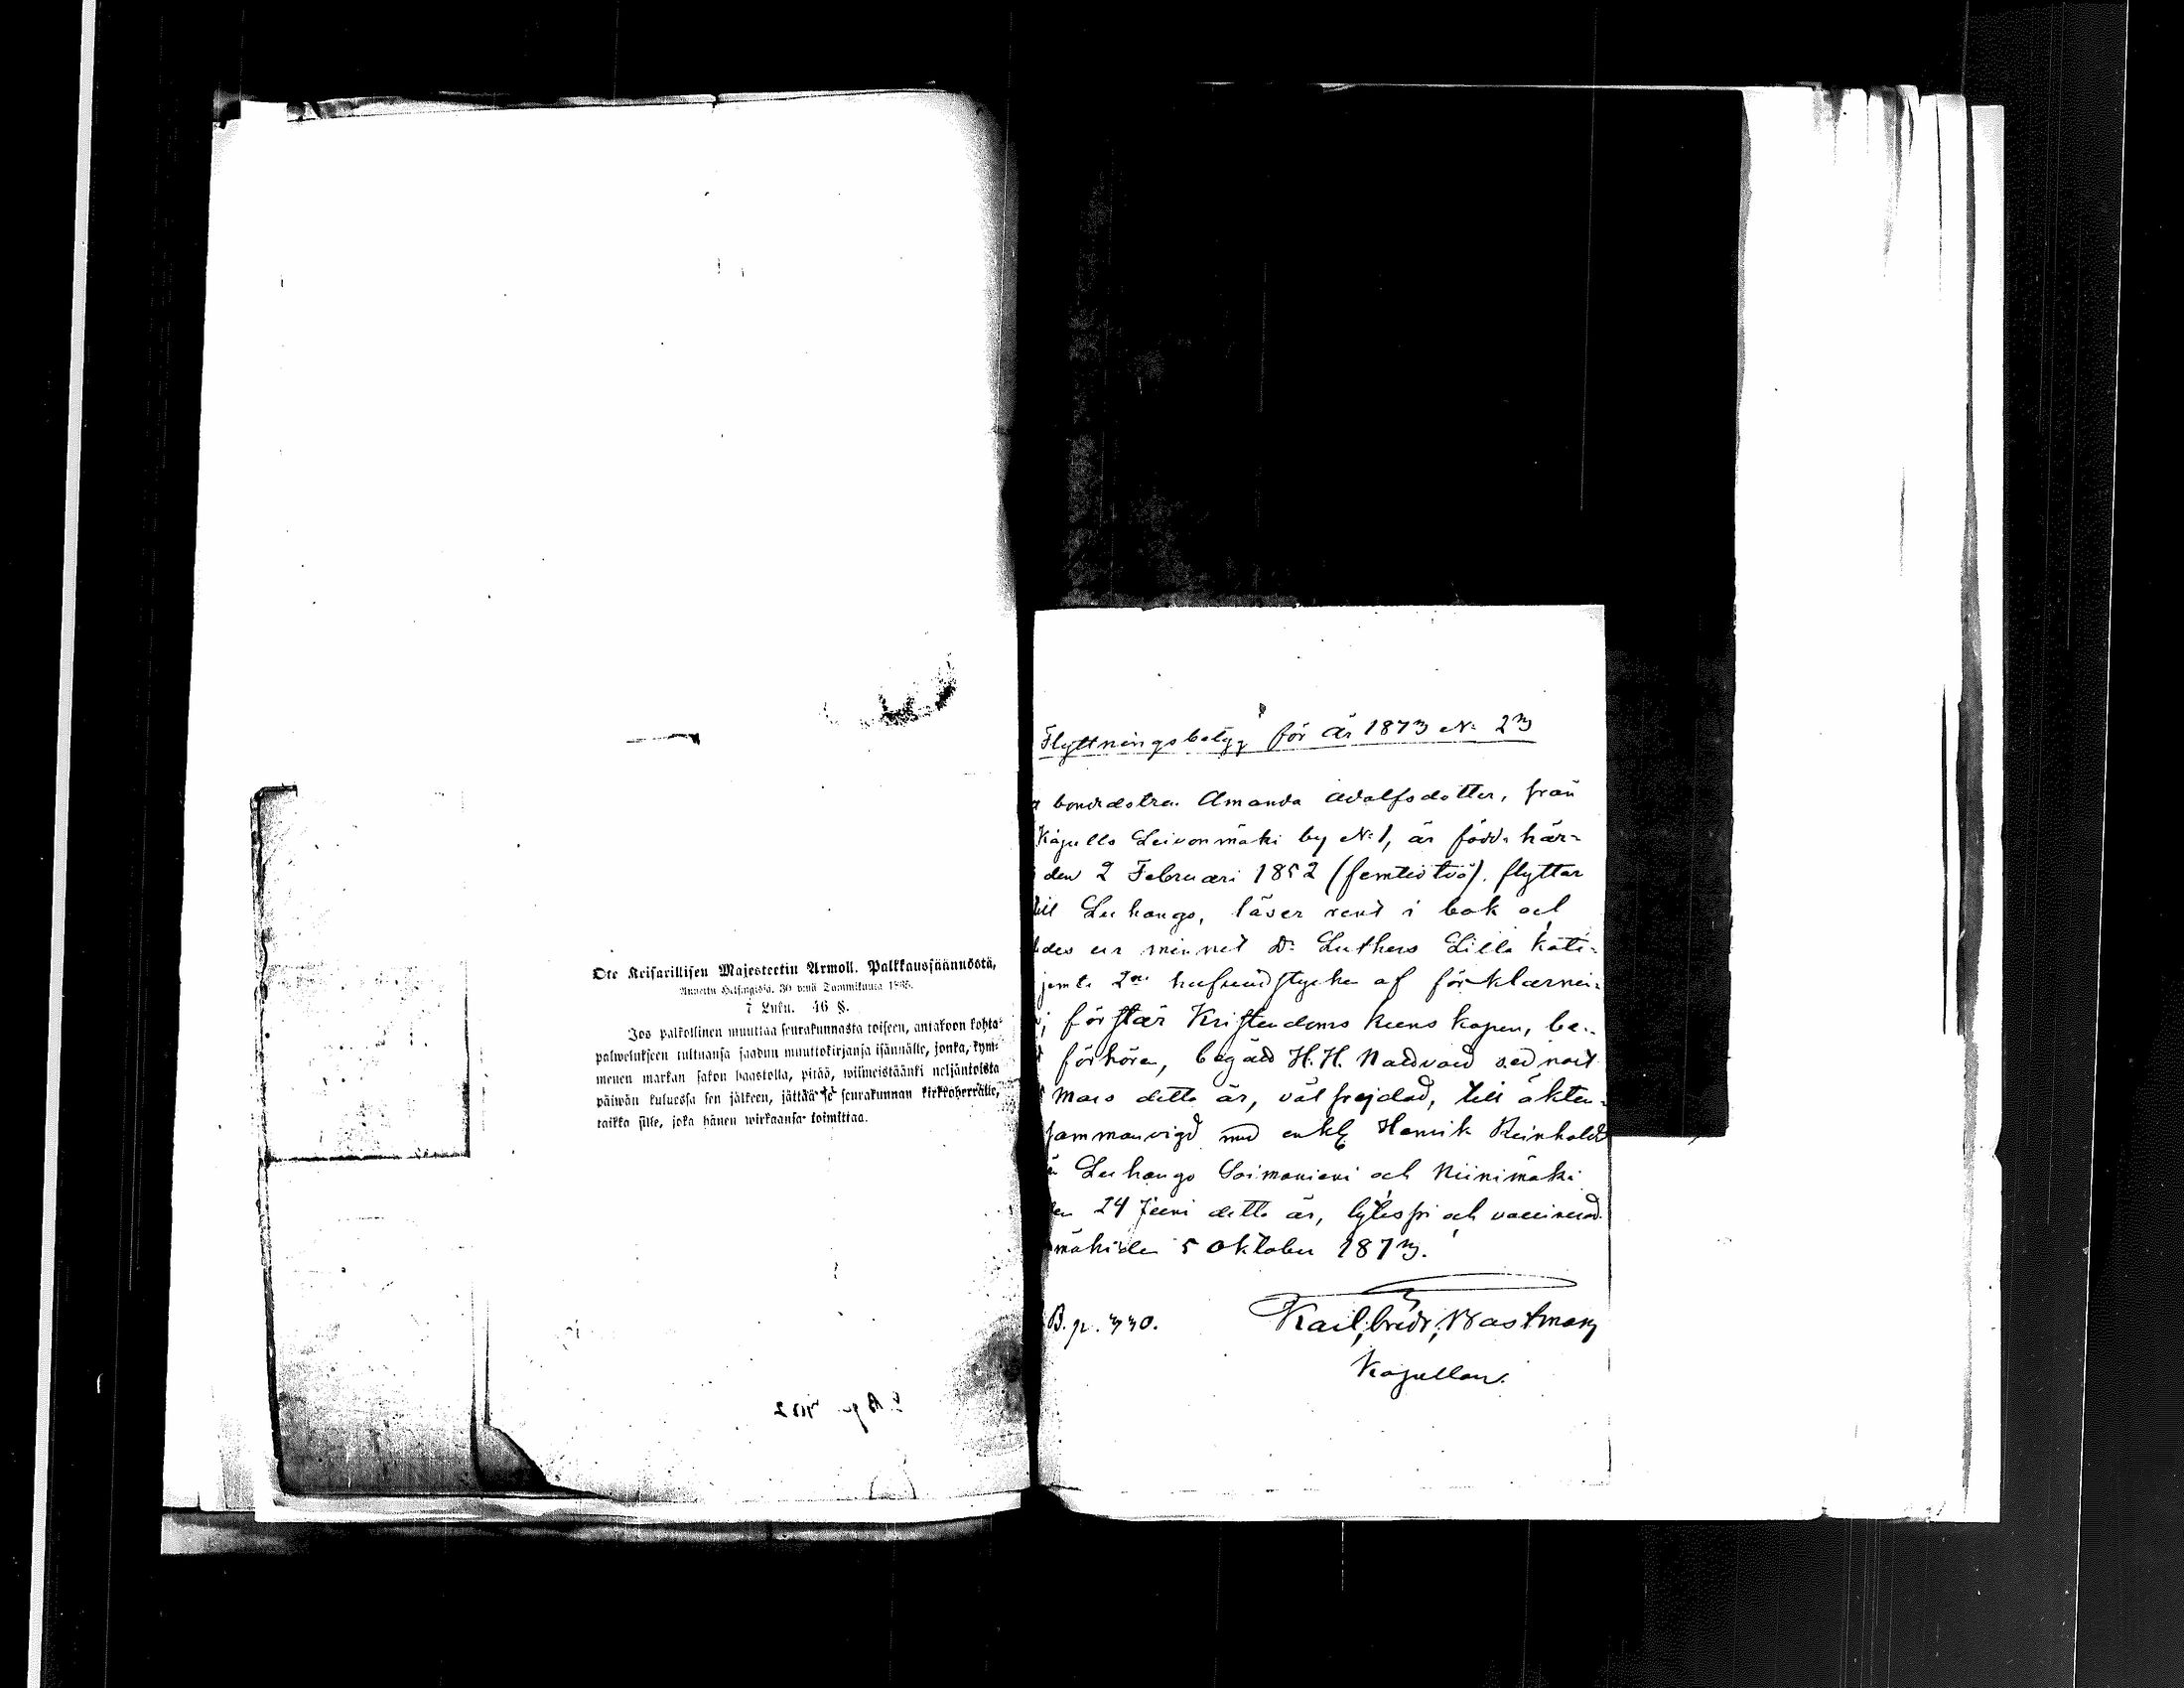 Ote Keisarillisen Majesteetin Armoll. Palkkaussäännöstä,
Annettu Helsingissä, 30 p:nä Tammikuuta 1865.
7 Luku. 46 §.
Jos palkollinen muuttaa seurakunnasta toiseen, antakoon kohta
palwelukseen tultuansa saadun muuttokirjansa isännälle, jonka, kym-
menen markan sakon haastolla, pitää, wiimeistäänki neljäntoista
päiwän kuluessa sen jälkeen, jättää se seurakunnan kirkkoherralle,
taikka sille, joka hänen wirkaansa toimittaa.
Flyttningsbetyg för år 1873 No 23
bondedotren Amanda Adolfsdotter, från
Kapells Leivonmäki by No 1, är född här-
den 2 Februari 1852 (femtiotvå). flyttar
till Luhango, läser rent i bok och
des ur minnet Dr Luthers Lilla kate-
jemte 2ne hufvudstycken af förklarin-
förstår Kristendoms kunskapen, be-
förhören, begådd H. H. Nattvard sednast
Mars detta år, välfrejdad, till äkten-
sammanvigd med enkl Henrik Reinhold
Luhango Soimaniemi och Niinimäki
24 Juni detta år, lytesfri och vaccinerad.
mäki den 5 Oktober 1873.
B. p. 330.
Karl Fredr. Wastman
Kapellan.